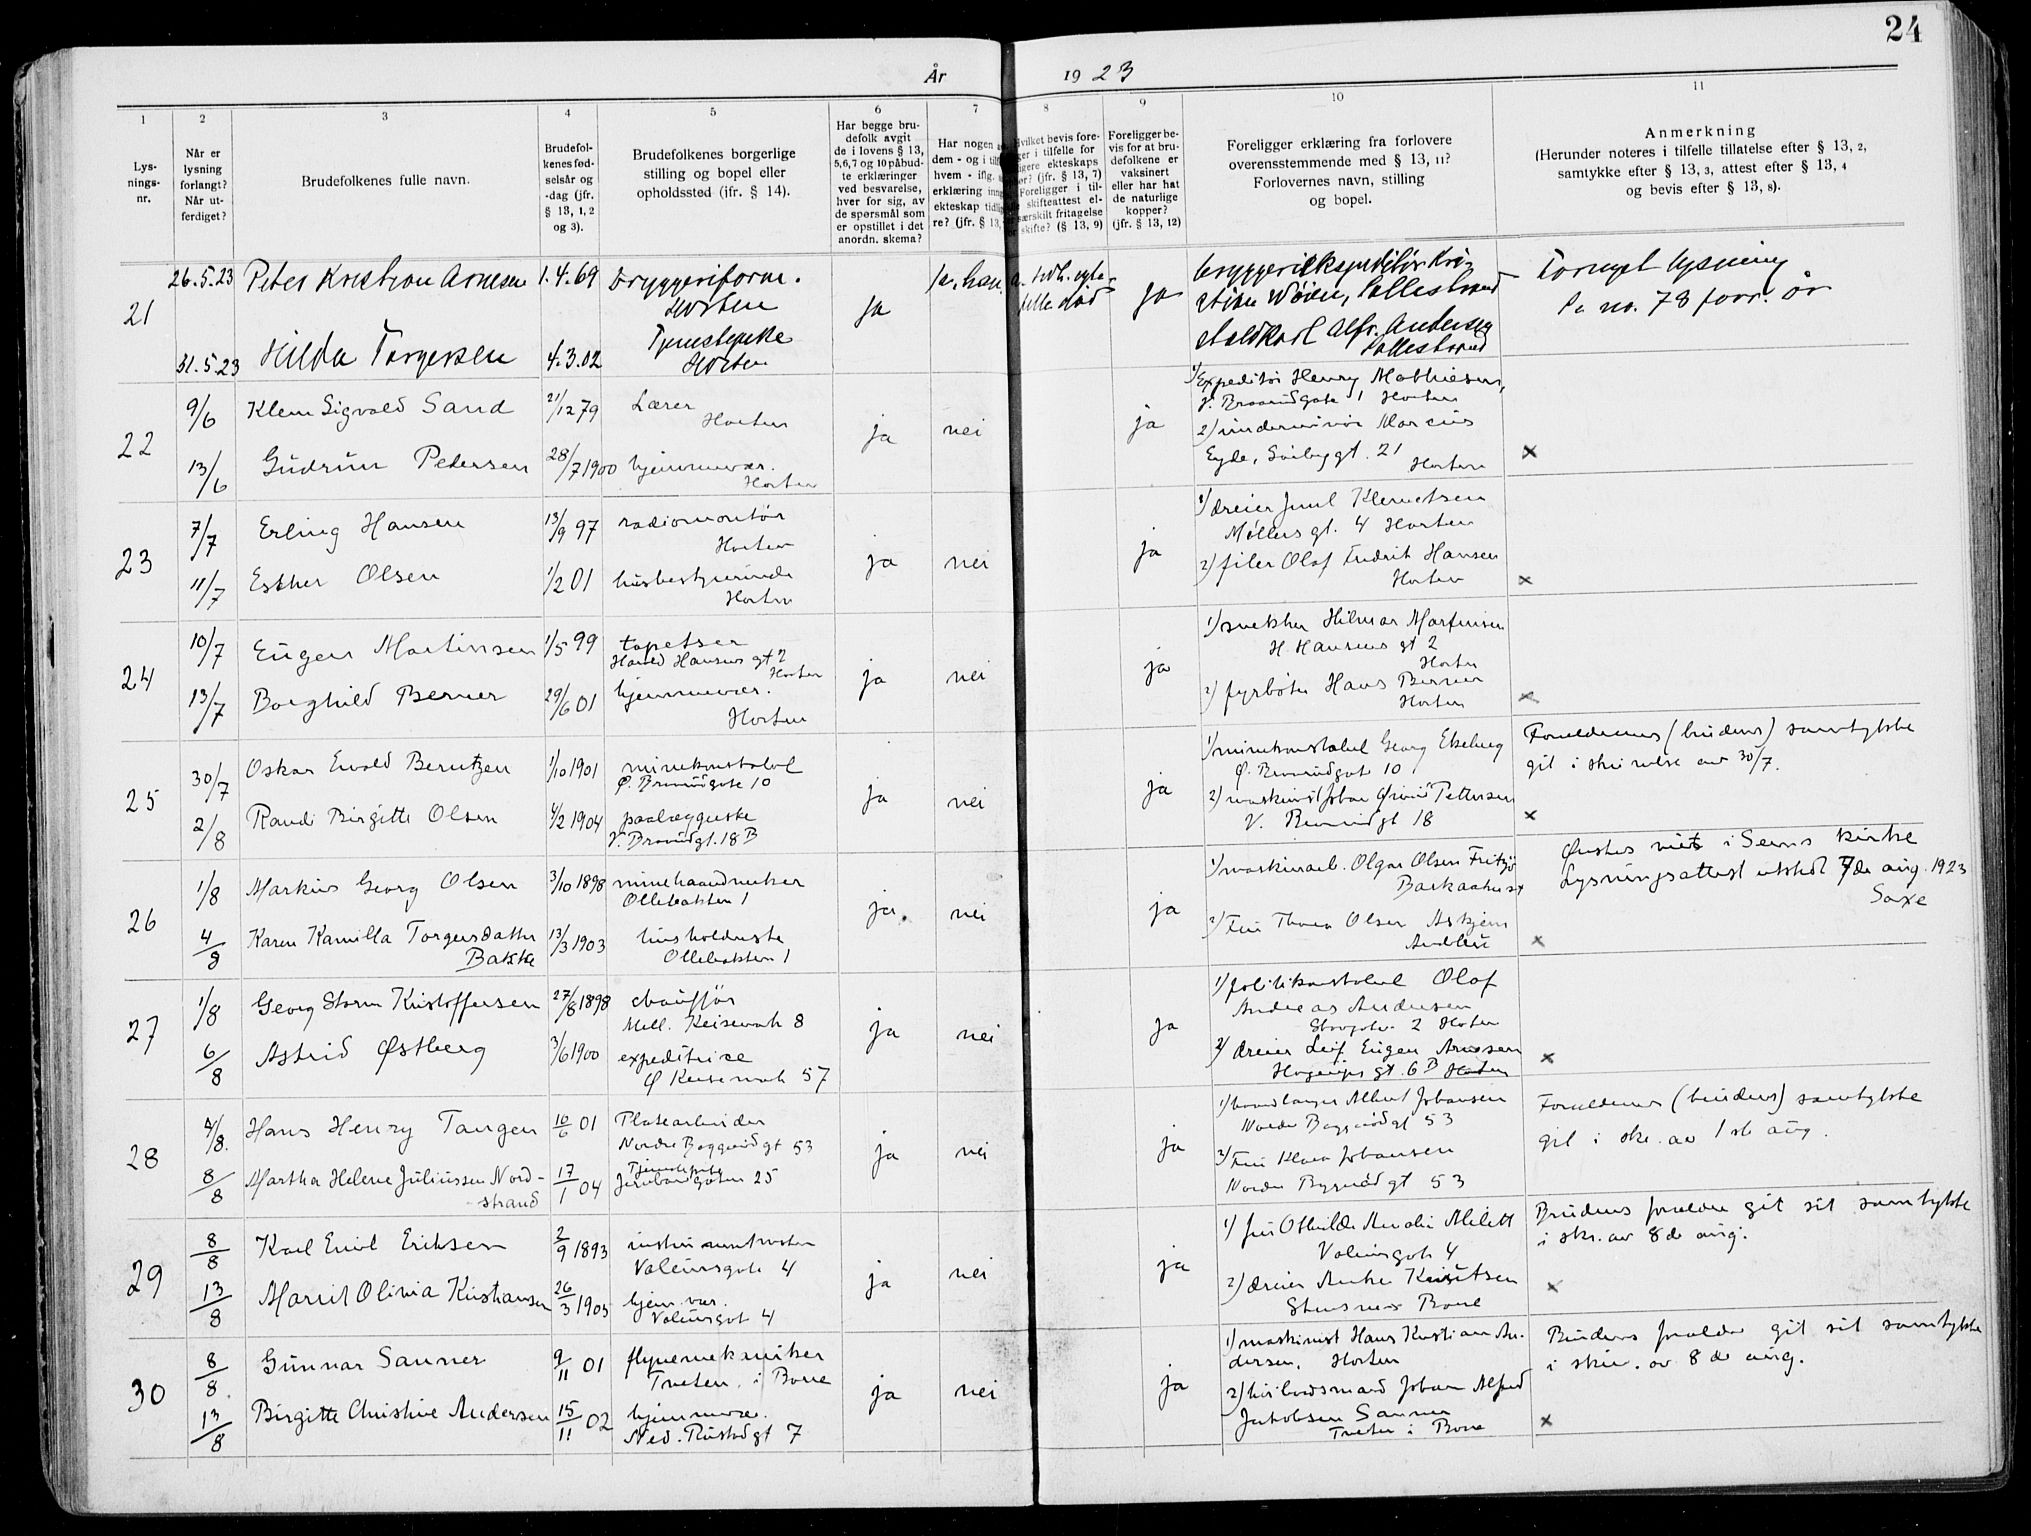 24
År 1923
1 2 3 4 5 6 7 8 9 10 11
Lys-
nings-
nr.
Når er
lysning
forlangt?
Når ut-
ferdiget?
Brudefolkenes fulle navn.
Brudefol-
kenes fød-
selsår og
-dag (jfr.
§ 13, 1, 2
og 3).
Brudefolkenes borgerlige
stilling og bopel eller
opholdssted (ifr. § 14).
Har begge bru-
defolk avgit
de i lovens § 13,
5,6,7 og 10 påbud-
te erklæringer
ved besvarelse,
hver for sig, av
de spørsmål som
er opstillet i det
anordn. skema?
Har nogen
dem - og i
hvem - iflg.
erklæring
ekteskap
re? (jfr. § 13,
Hvilket bevis fore-
i tilfelle for
ekteskaps
(jfr. § 13, 7)
Foreligger i til-
skifteattest el-
særskilt fritagelse
skifte? (§ 13, 9)
Foreligger be-
vis for at bru-
defolkene er
vaksinert
eller har hat
de naturlige
kopper?
(jfr. § 13, 12)
Foreligger erklæring fra forlovere
overensstemmende med § 13, 11?
Forlovernes navn, stilling
og bopel.
Anmerkning
(Herunder noteres i tilfelle tillatelse efter § 13, 2,
samtykke efter § 13, 3, attest efter § 13, 4
og bevis efter § 13, 8).
21
26.5.23 Peter Kristian Arnesen 1.4.69 Bryggeriform.
Horten
31.5.23 Hilda Torgersen 4.3.02 Tjenestepike
Horten
ja ja, han ja
Bryggeriekspeditør Kri-
stian Wøien, Falkestrand
staldkarl Alfr. Andersen
Fornyet lysning
no. 78 forr. år
22
9/6 Klem Sigvald Sand 21/12 79 Lærer
Horten
13/6 Gudrun Pedersen 28/7 1900 hjemmevær.
Horten
ja nei ja
1) Expeditør Henry Mathiesen,
V. Braarudgate 1 Horten
2) underminør Marcus
Eyde, Horten
x
23
7/7 Erling Hansen 13/9 97 radiomontør
Horten
11/7 Esther Olsen 1/2 01 husbestyrerinde
Horten
ja nei ja
1) dreier Juul Klemetsen
Møllers gt. 4 Horten
2) filer Olaf Fredrik Hansen
Horten
x
24
10/7 Eugen Martinsen 1/5 99 tapetser
Harald Hansens gt 2
Horten
13/7 Borghild Berner 29/6 01 hjemmevær.
Horten
ja nei ja
1) snekker Hilmar Martinsen
H. Hansens gt 2
Horten
2) fyrbøter Hans Berner
Horten
x
25
30/7 Oskar Evald Berntzen 1/10 1901 minekonstabel
Ø. Braarudgate 10
2/8 Randi Birgitte Olsen 4/2 1904 paalæggerske
V. Braarudgt. 18 B
ja nei ja
1) minekonstabel Georg Ekeberg
Ø. Braarudgate 10
2) maskinist Johan Pettersen
V. Braarudgt 18
Forældrenes (brudens) samtykke
git i skrivelse av 30/7.
x
26
1/8 Markus Georg Olsen 3/10 1898 minehaandverker
Ollebakken 1
4/8 Karen Kamilla Torgersdatter
Bakke 13/3 1903 husholderske
Ollebakken 1
ja. nei ja
1) maskinarb. Olgar Olsen
2) Fru Thora Olsen Askjem
Andebu
Ønskes viet i Sems kirke
Lysningsattest utstedt 7de aug. 1923
Saxe
x
27
1/8 Georg Storm Kristoffersen 27/8 1898 chauffør
Mell. Keiserveh 8
6/8 Astrid Østberg 3/6 1900 expeditrice
Ø Keiserveh 57
ja nei ja
1) politikonstabel Olaf
Andreas Andersen
Storgaten 2 Horten
2) dreier Leif Eugen Arnesen
gt. 6 B Horten
x
28
4/8. Hans Henry Tangen 10/6 01 Platearbeider
Nordre Byggerud gt 53
8/8 Martha Helene Juliussen Nord-
-strand 17/1 04 Tjenestepike
Jernbanegaten 25
ja nei ja
1) Albert Johansen
53
2) Fru Klara Johansen
53
Forældrenes (brudens) samtykke
git i skr. av 1ste aug.
29
8/8 Karl Emil Eriksen 2/9 1893
4
13/8 Marit Olivia Kristiansen 26/3 1905 hjem. vær.
4
ja nei ja
1) fru Othilde Amalie Milett
4
2) dreier Knutsen
Borre
Brudens forældre git sit samtykke
i skr. av 8de aug.
x
30
8/8. Gunnar Sanner 9/11 01 flyvemekaniker
Tveten i Borre
13/8 Birgitte Christine Andersen 15/11 02 hjemmevær.
Ned. Rustadgt 7
ja nei ja
1) maskinist Hans Kristian An-
dersen, Horten
2) Johan Alfred
Jakobsen Sanner
Tveten i Borre
Brudens forældre git sit samtykke
i skriv. av 8de aug.
x